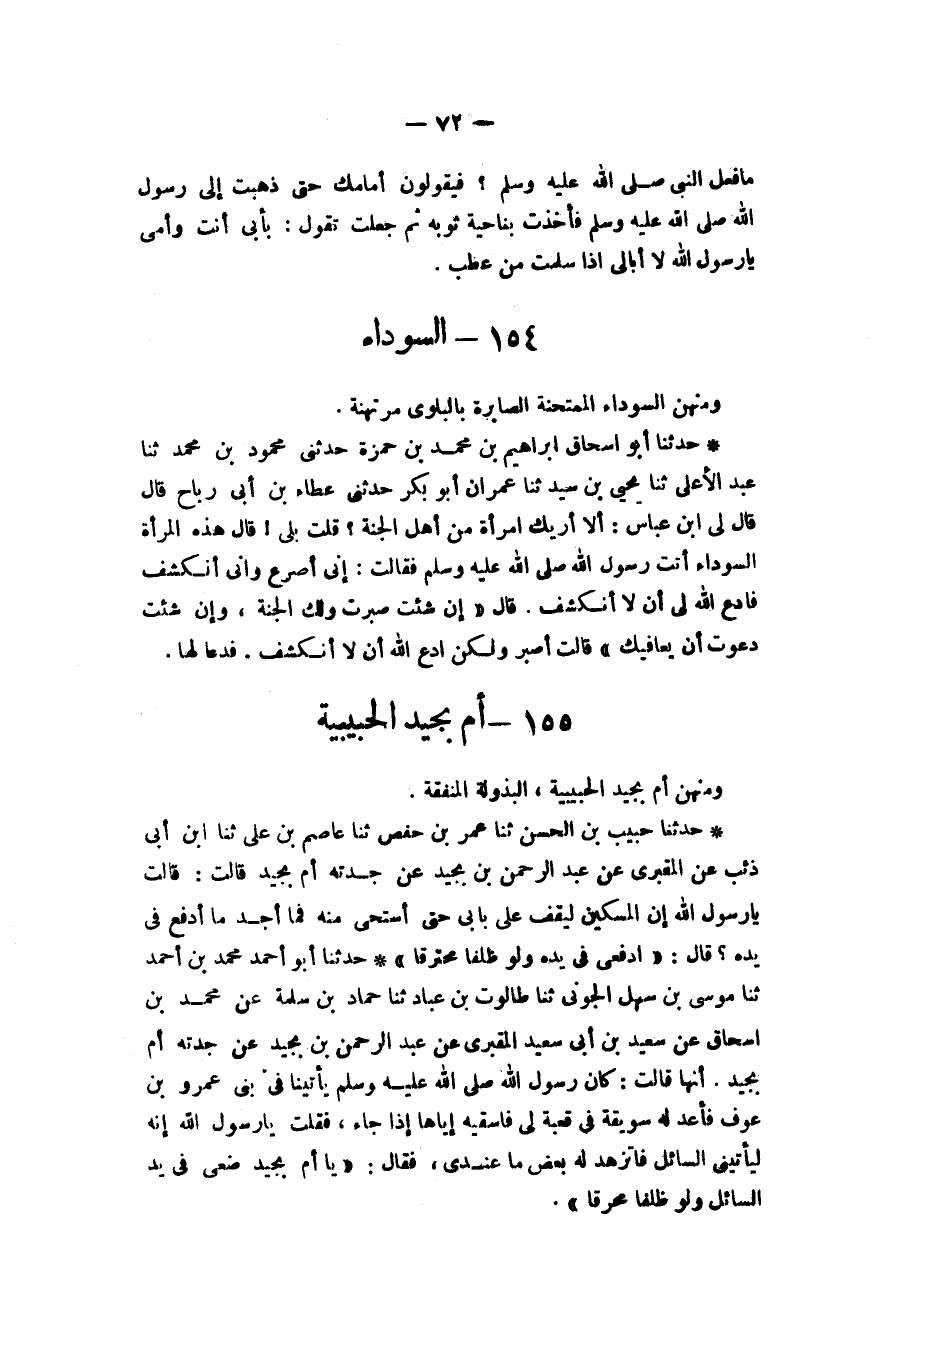 — ٧٢ —
مافعل النبي صلى الله عليه وسلم ؟ فيقولون أمامك حتى ذهبت إلى رسول
الله صلى الله عليه وسلم فأخذت بناحية ثوبه ثم جعلت تقول : بأبى أنت وأمى
يارسول الله لا أبالى اذا سلمت من عطب .
١٥٤ – السوداء
ومنهن السوداء الممتحنة الصابرة بالبلوى مرتهنة .
* حدثنا أبو اسحاق ابراهيم بن محمد بن حمزة حدثنى محمود بن محمد ثنا
عبد الأعلى ثنا يحيى بن سيد ثنا عمران أبو بكر حدثنى عطاء بن أبى رباح قال
قال لى ابن عباس : ألا أريك امرأة من أهل الجنة ؟ قلت بلى ! قال هذه المرأة
السوداء أتت رسول الله صلى الله عليه وسلم فقالت : إنى أصرع وانى أنكشف
فادع الله لى أن لا أنكشف . قال « إن شئت صبرت ولك الجنة ، وإن شئت
دعوت أن يعافيك » قالت أصبر ولكن ادع الله أن لا أنكشف . فدعا لها .
١٥٥ – أم بجيد الحبيبية
ومنهن أم بجيد الحبيبية ، البذولة المنفقة .
* حدثنا حبيب بن الحسن ثنا عمر بن حفص ثنا عاصم بن على ثنا ابن أبى
ذئب عن المقبرى عن عبد الرحمن بن بجيد عن جدته أم بجيد قالت : قالت
يارسول الله إن المسكين ليقف على بابى حتى أستحى منه فما أجد ما أدفع فى
يده ؟ قال : « ادفعى فى يده ولو ظلفا محترقا » * حدثنا أبو أحمد محمد بن أحمد
ثنا موسى بن سهل الجونى ثنا طالوت بن عباد ثنا حماد بن سلمة عن محمد بن
اسحاق عن سعيد بن أبى سعيد المقبرى عن عبد الرحمن بن بجيد عن جدته أم
بجيد . أنها قالت : كان رسول الله صلى الله عليه وسلم يأتينا فى بنى عمرو بن
عوف فأعد له سويقة فى قعبة لى فاسقيه إياها إذا جاء ، فقلت يارسول الله إنه
ليأتينى السائل فاتزهد له بعض ما عندى ، فقال : « يا أم بجيد ضعى فى يد
السائل ولو ظلفا محرقا » .